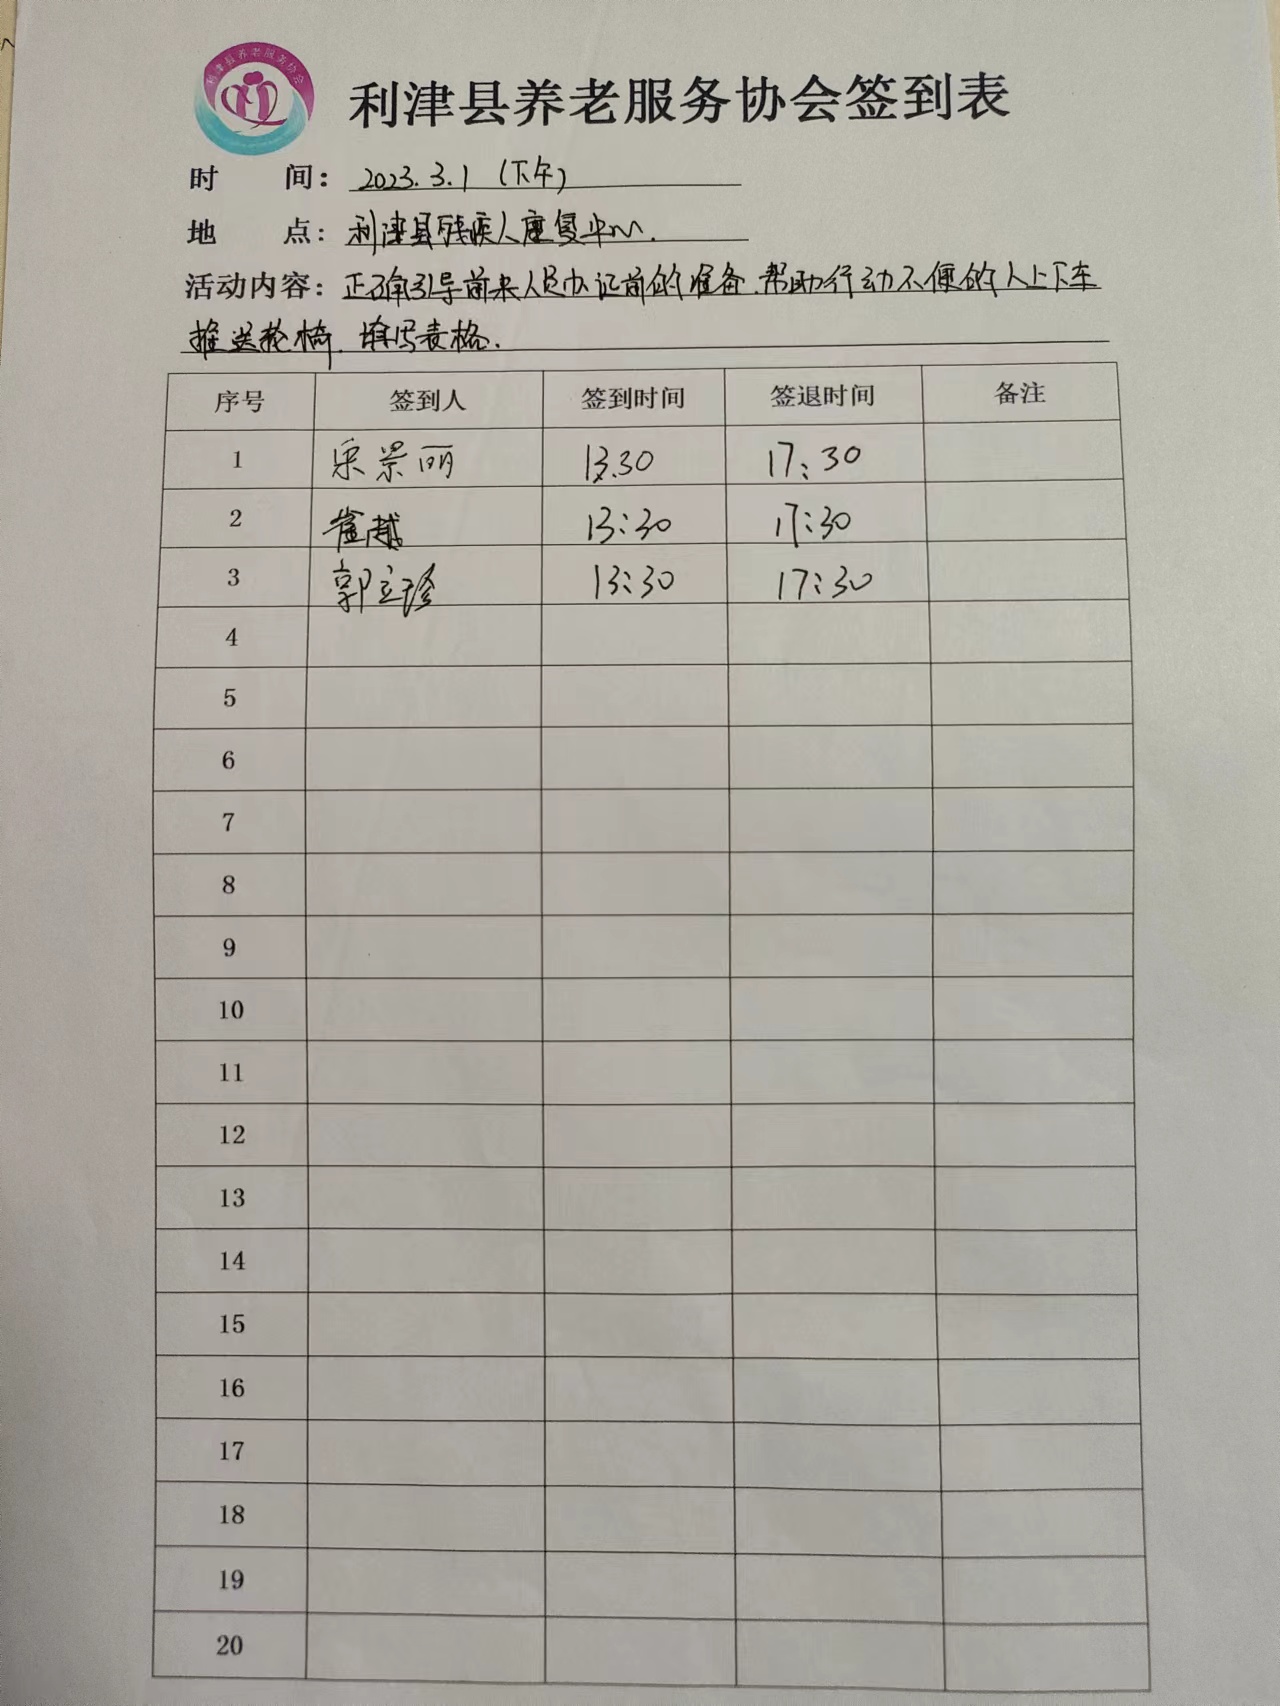 利津县养老服务协会
利津县养老服务协会签到表
时 间：2023.3.1（下午）
地 点：利津县残疾人康复中心.
活动内容：正确引导前来人员办证前的准备.帮助行动不便的人上下车
推送轮椅.填写表格.
序号 签到人 签到时间 签退时间 备注
1 宋景丽 13.30 17:30
2 崔越 13:30 17:30
3 郭立珍 13:30 17:30
4
5
6
7
8
9
10
11
12
13
14
15
16
17
18
19
20